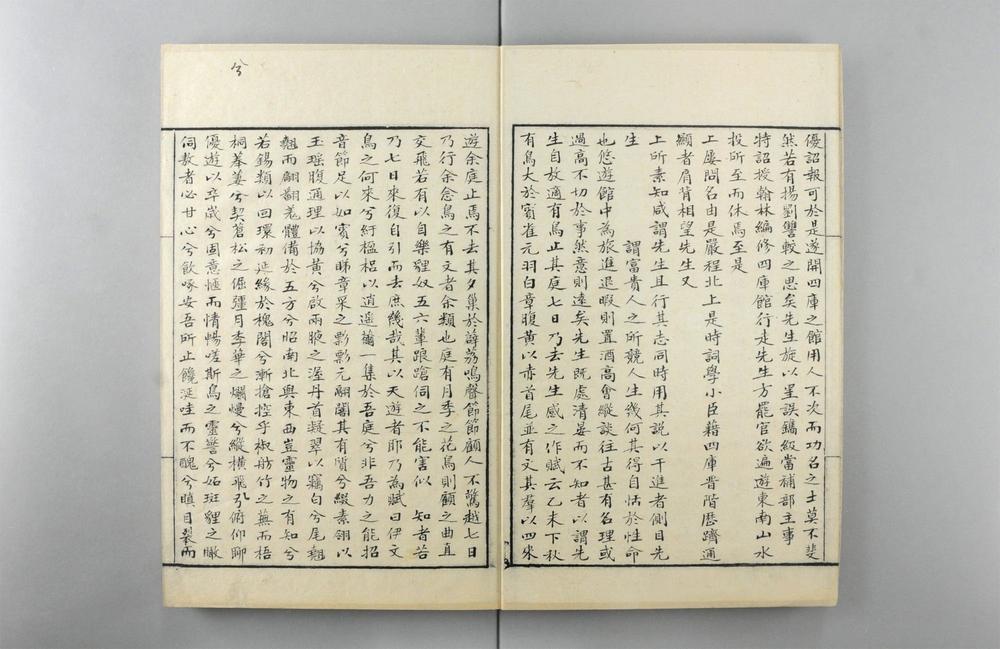 優詔報可於是遂開四庫之館用人不次而功名之士莫不斐
然若有揚劉讐較之思矣先生旋以呈誤鐫級當補部主事
特詔授翰林編修四庫館行走先生方罷官欲遍遊東南山水
投所至而休焉至是
上屢問名由是嚴程北上是時詞學小臣藉四庫晋階歷躋通
顯者肩背相望先生又
上所素知咸謂先生且行其志同時用其說以干進者側目先
生　　謂富貴人之所競人生幾何其得自恬於性命
也悠遊館中為旅進退暇則置酒高會縱談往古甚有名理或
過高不切於事然意則遠矣先生既處清晏而不知者以謂先
生自放適有鳥止其庭七日乃去先生感之作賦云乙未下秋
有鳥大於賓雀元羽白章腹黃以赤首尾並有文其羣以四來
兮
遊余庭止焉不去其夕巢於薜荔鳴聲節節顧人不驚越七日
乃行余念鳥之有文者余類也庭有月季之花鳥則顧之曲直
交飛若有以自樂貍奴五六輩踉蹌伺之不能害似　知者若
乃七日來復自引而去庶幾哉其以天遊者耶乃為賦曰伊文
鳥之何來兮紆楹梠以逍遙翿一集於吾庭兮非吾力之能招
音節足以如賓兮睇章采之影影元翮闇其有質兮綴素翎以
玉瑤腹通理以協黃兮啟兩腋之渥丹首凝翠以竊白兮尾翹
翹而翩翻羌體備於五方兮昭南北與東西豈靈物之有知兮
若錫類以回環初延緣於槐閣兮漸搶控乎椒舫竹之蕪而梧
桐萋萋兮契蒼松之倔彊月季華之爛熳兮縱橫飛孔俯仰聊
優遊以卒歲兮固意愜而情暢嗟斯鳥之靈警兮妬斑貍之瞰
伺敖者必甘心兮飲啄安吾所止饞涎哇而不醜兮瞋目裂而